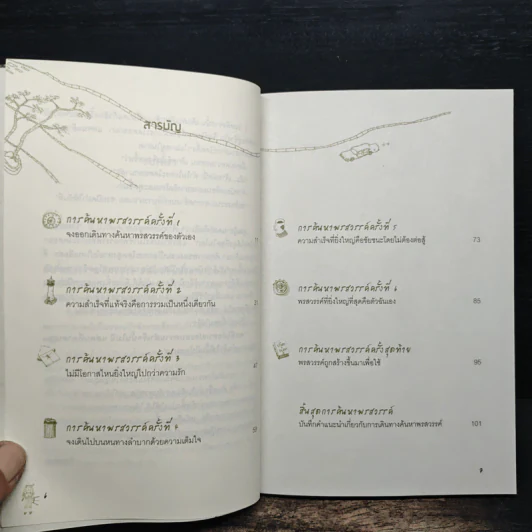 สารบัญ
การค้นหาพรสวรรค์ครั้งที่ 1
จงออกเดินทางค้นหาพรสวรรค์ของตัวเอง
การค้นหาพรสวรรค์ครั้งที่ 2
ความสำเร็จที่แท้จริงคือการรวมเป็นหนึ่งเดียวกัน
การค้นหาพรสวรรค์ครั้งที่ 3
ไม่มีโอกาสไหนยิ่งใหญ่ไปกว่าความรัก
การค้นหาพรสวรรค์ครั้งที่ 4
จงเดินไปบนหนทางลำบากด้วยความเต็มใจ
การค้นหาพรสวรรค์ครั้งที่ 5
ความสำเร็จที่ยิ่งใหญ่คือชัยชนะโดยไม่ต้องต่อสู้ 73
การค้นหาพรสวรรค์ครั้งที่ 6
พรสวรรค์ที่ยิ่งใหญ่ที่สุดคือตัวฉันเอง 85
การค้นหาพรสวรรค์ครั้งสุดท้าย
พรสวรรค์ถูกสร้างขึ้นมาเพื่อใช้ 95
สิ้นสุดการค้นหาพรสวรรค์
บันทึกคำแนะนำเกี่ยวกับการเดินทางค้นหาพรสวรรค์ 101